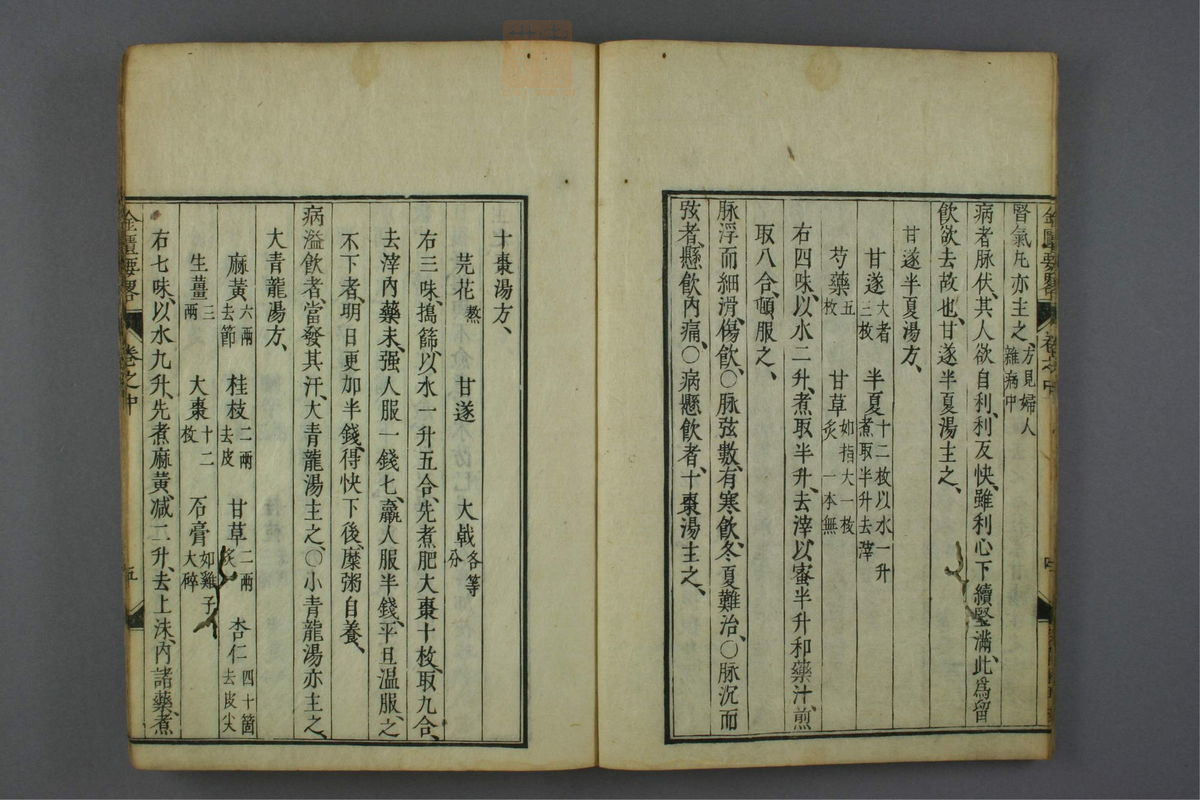 腎氣丸亦主之、方見婦人雜病中
病者脉伏、其人欲自利、利反快、雖利心下續堅滿、此爲留
飮欲去故也、甘遂半夏湯主之、
甘遂半夏湯方、
甘遂大者三枚 半夏十二枚以水一升煮取半升去滓
芍藥五枚 甘草如指大一枚炙一本無
右四味、以水二升、煮取半升、去滓、以蜜半升和藥汁煎
取八合、頓服之、
脉浮而細滑、傷飮、○脉弦數、有寒飮、冬夏難治、○脉沉而
弦者、懸飮内痛、○病懸飮者、十棗湯主之、
十棗湯方、
芫花熬 甘遂 大戟各等分
右三味、搗篩、以水一升五合、先煮肥大棗十枚、取九合、
去滓、内藥末、强人服一錢匕、羸人服半錢、平旦温服、之
不下者、明日更加半錢、得快下後、糜粥自養、
病溢飮者、當發其汗、大青龍湯主之、○小青龍湯亦主之、
大青龍湯方、
麻黄六兩去節 桂枝二兩去皮 甘草二兩炙 杏仁四十箇去皮尖
生薑三兩 大棗十二枚 石膏如雞子大碎
右七味、以水九升、先煮麻黄、減二升、去上沫、内諸藥、煮
金匱要畧 卷之中 五